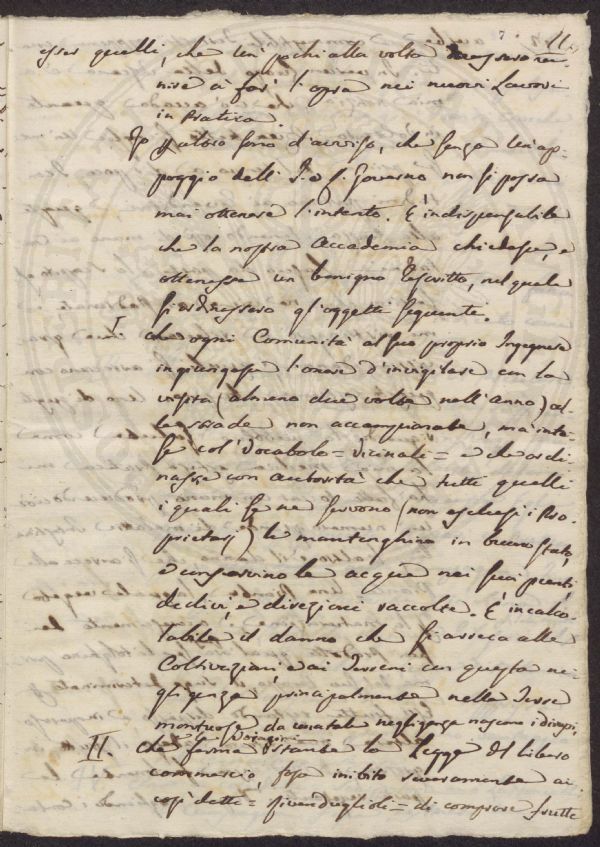 11.
esser quelli, che un pochi alla volta
nire à far l'opra nei nuovi Lavori
in Pratica.
Io poi sono d'avviso, che senza un'ap-
poggio dell' I. e R. Governo non si possa
mai ottenere l'intento. È indispensabile
che la nostra Accademia chiedesse, e
ottenesse un benigno Rescritto, nel quale
si esprimessero gl'oggetti seguenti.
I che ogni Comunità al suo proprio Ingegnere
ingiungesse l'onere d'invigilare con la
visita (almeno due volte nell'Anno) al-
le strade non accampionate, ma inte-
se col Vocabolo = Vicinali = e che ordi-
nasse con autorità che tutti quelli
i quali se ne servono (non esclusi i Pro-
prietarj) le mantenghino in buono stato,
e conservino le acque nei suoi
declivi, e direzioni raccolte. È incalco-
labile il danno che si arreca alle
Coltivazioni, e ai Terreni con questa ne-
gligenza, principalmente nelle Terre
montuose da una tale negligenza nascono i dirupi,
II. che ferma stante la Legge del libero
commercio, sia inibito severamente ai
così detti = = di comprare frutte